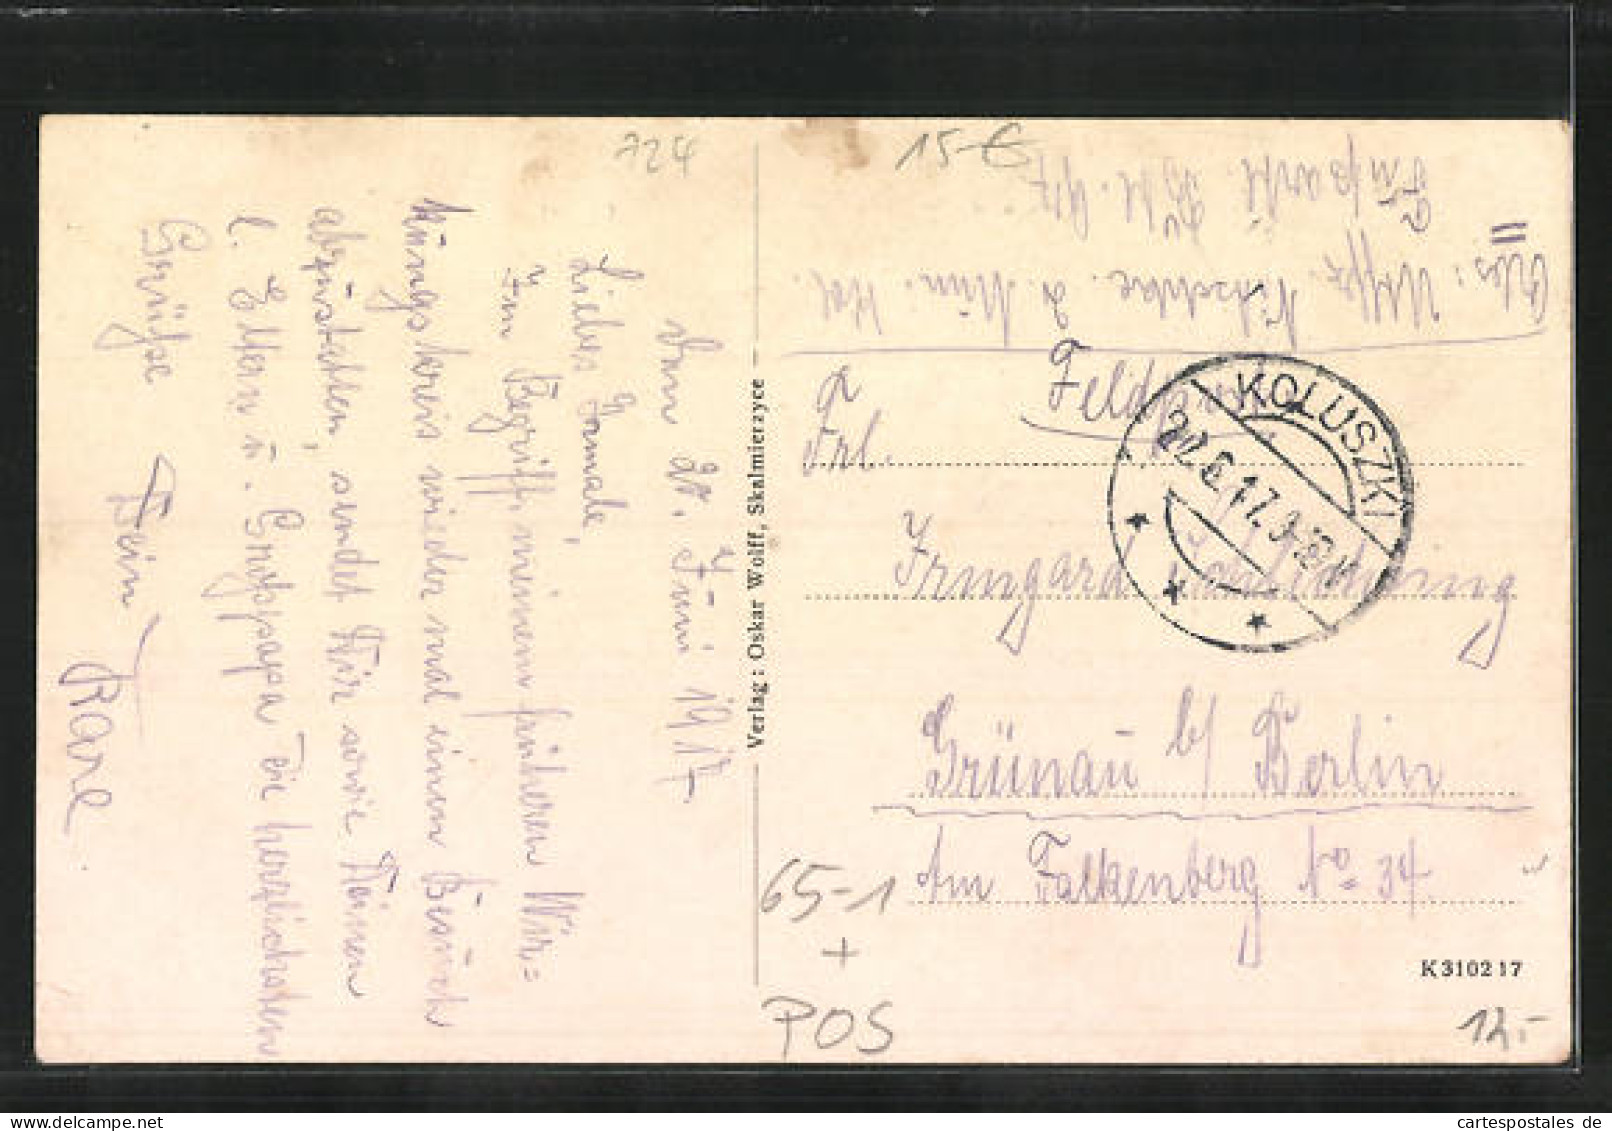 724
Den 20. Juni 1917
Liebes Irmale,
Im Begriff, meinem früheren Wir=
kungskreis wieder mal einen Besuch
abzustatten, sendet Dir sowie Deinen
l. Eltern u. Großpapa die herzlichsten
Grüße
Dein
Karl
Verlag: Oskar Wolff, Skalmierzyce
15-€
Abs: Uffz. Nitschke. 2. Mun. Kol.
Fußartl.
Feldpost.
KOLUSZKI
22.6.17.9-10V
Frl.
Irmgard
Grünau b/ Berlin
Am Falkenberg No 34.
65-1
+
POS
K 3102 17
12.-
cartespostales de